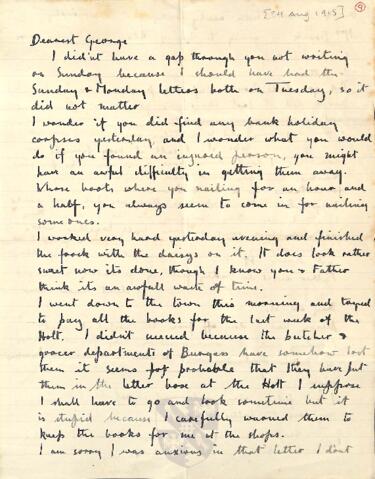 [04 Aug 1915]
9
Dearest George
I didn't have a gap through you not writing
on Sunday because I should have had the
Sunday & Monday letters both on Tuesday, so it
did not matter
I wonder if you did find any bank holiday
corpses yesterday, and I wonder what you would
do if you found an injured person, you might
have an awful difficulty in getting them away.
Whose boots where you nailing for an hour and
a half, you always seem to come in for nailing
someones.
I worked very hard yesterday evening and finished
the frock with the daisys on it. It does look rather
sweet now its done, though I know you & Father
think its an awfull waste of time.
I went down to the town this morning and tryed
to pay all the books for the last week of the
Holt. I didn't succeed because the butcher &
grocer departments of Burgess have somehow lost
them it seems probable that they have put
them in the letter boxe at the Holt I suppose
I shall have to go and look sometime but it
is stupid because I carefully warned them to
keep the books for me at the shops.
I am sorry I was anxious in that letter I dont